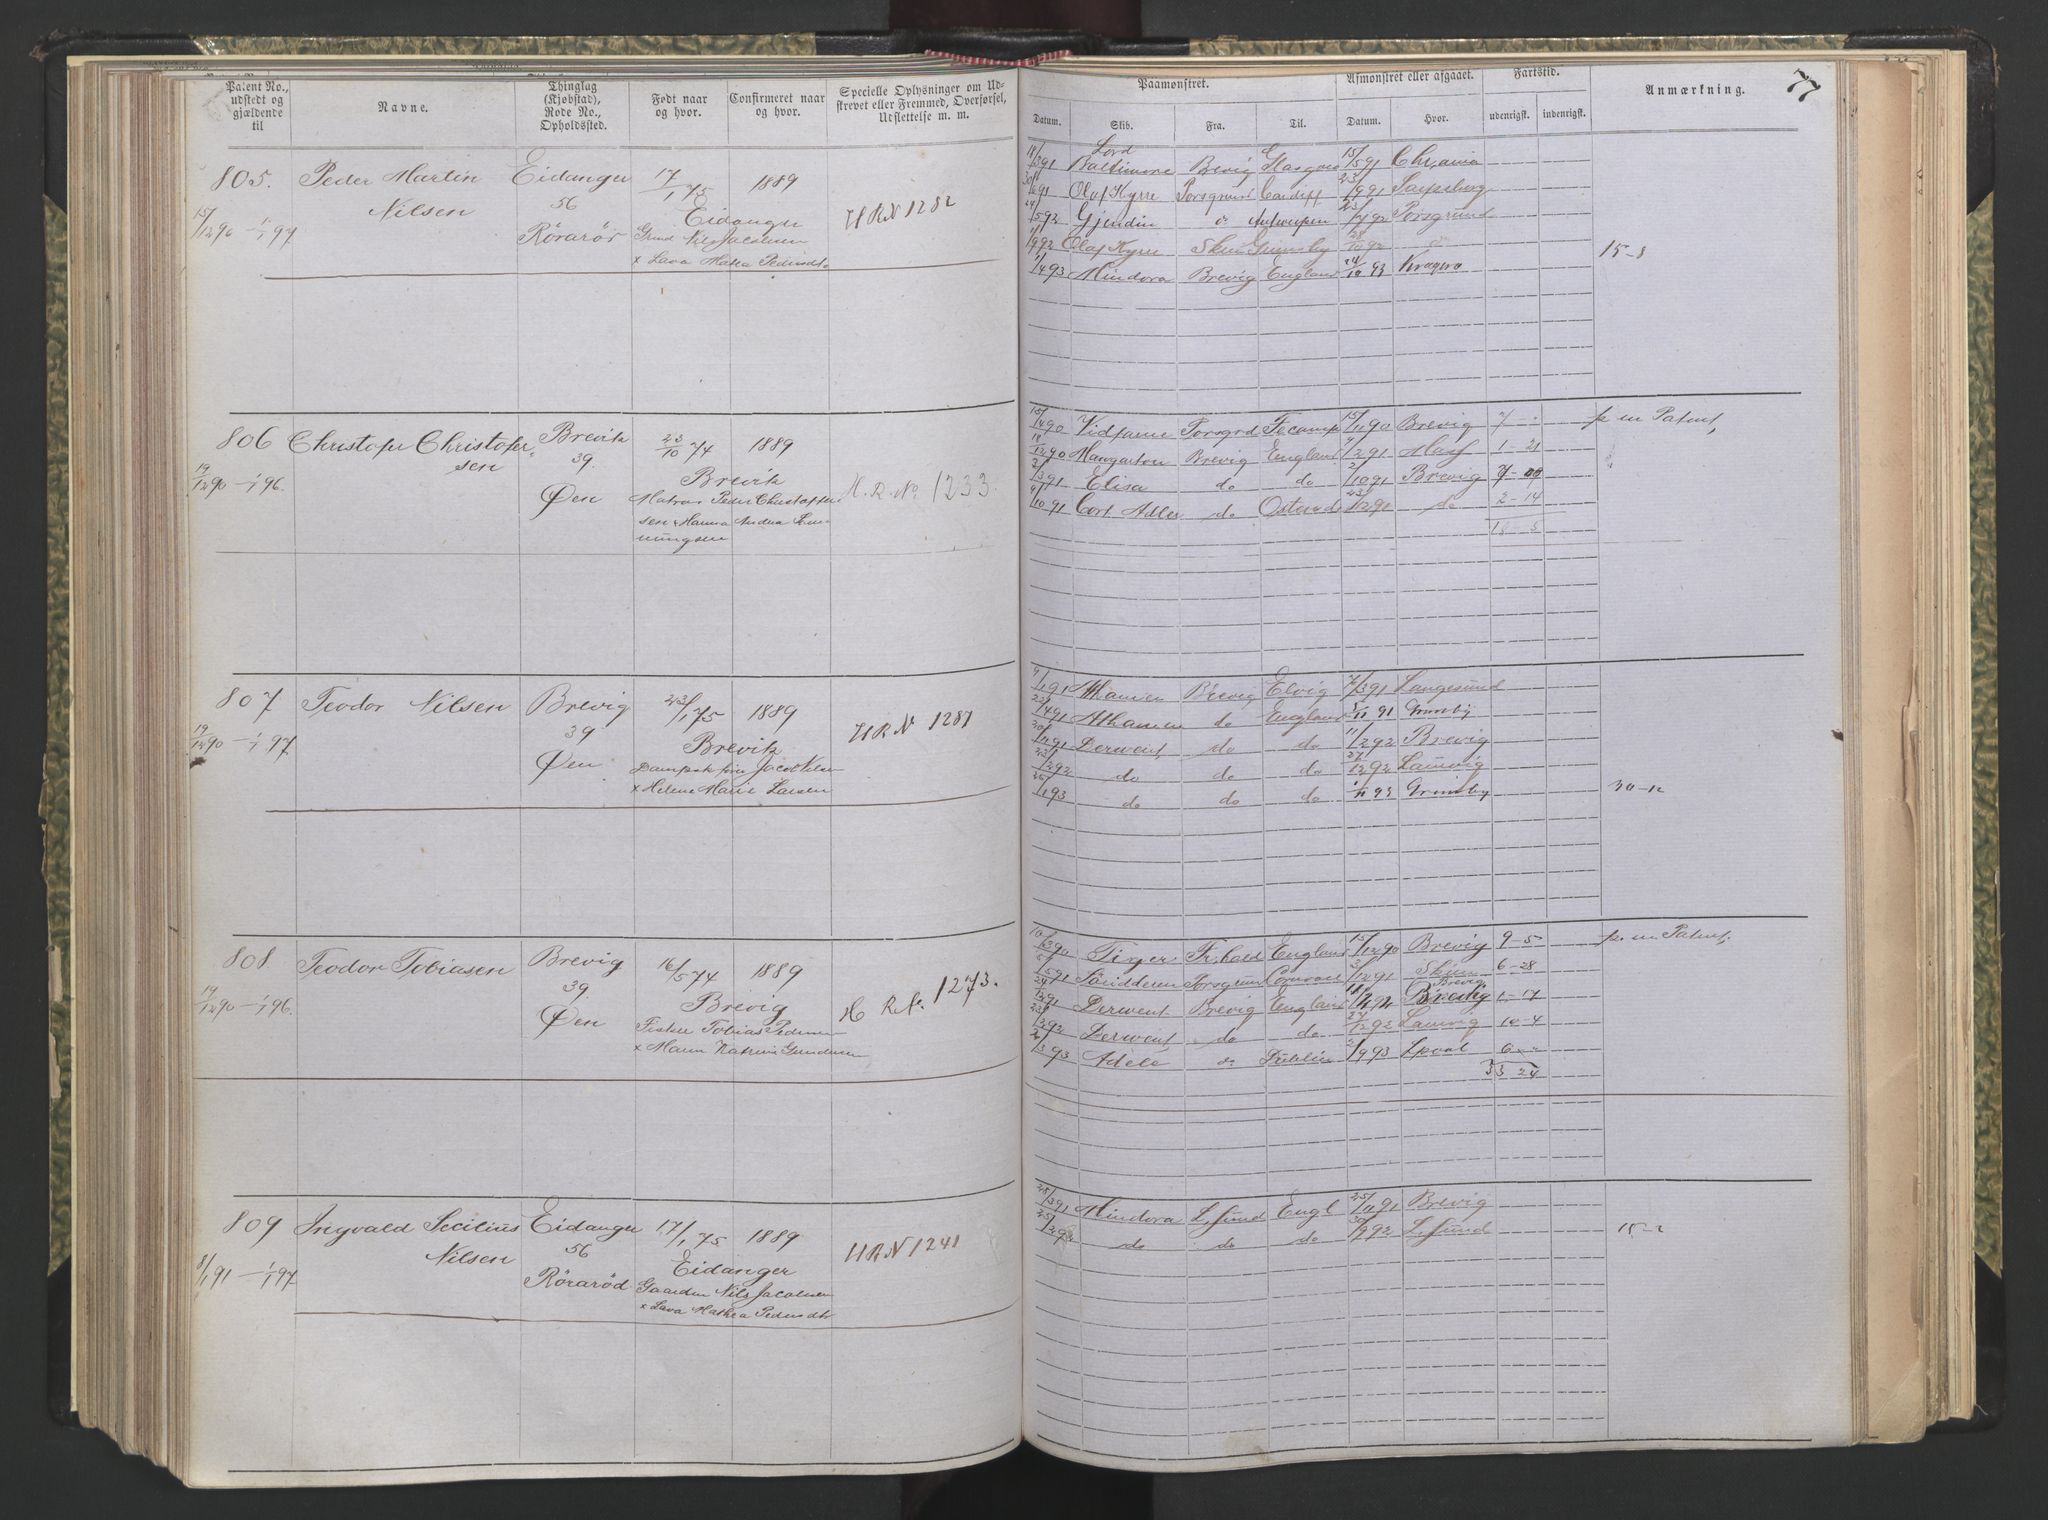 Patent No., udstedt og gjældende til
Navne.
Thinglag (Kjøbstad), Rode No., Opholdssted.
Født naar og hvor.
Confirmeret naar og hvor.
Specielle Oplysninger om Udstrevet eller Fremmed, Overførsel, Udslettelse m. m.
Paamønstret.
Afmønstret eller afgaaet.
Fartstid.
Anmærkning.
77
Datum. Skib. Fra. Til. Datum. Hvor. udenrigst. indenrigst.
805. Peder Martin Eidanger 17/1 75 1889
Nilsen 56 Eidanger H R N 1282
15/12 90 – 1/1 97 Rörarör Nils Jacobsen
x Lava Mathea Pedersdt.
18/3 91 Lord Baltimore Brevig Glasgow 15/5 91 Chr.ania
Olaf Kyrre Porsgrund Cardiff 23/9 91 Sarpsborg
24/5 92 Gjendin do Antwerpen 23/7 92 Porsgrund
1/9 92 Olaf Kyrre Skien Grimsby 28/12 92 do
1/4 93 Mindora Brevig England 24/10 93 Kragerø
15-8
806 Christofer Christofersen Brevik 23/10 74 1889
39. Brevik H. R. No. 1233.
19/12 90 – 1/1 96. Øen Matros Peder Christoffersen
x Hanna Andrea
15/4 90 Vidfarne Porsgrd Fecamp 15/11 90 Brevig 7 - " p. en Patent,
18/12 90 Brevig England 9/2 91 1-21
2/3 91 Elisa do do 2/10 91 Brevig 7-00
9/10 91 Cort Adler do Ostende 23/12 91 do 2-14
18-5
807 Teodor Nilsen Brevig 23/1 75 1889
39 Brevik H R N 1287
19/12 90 – 1/1 97. Øen Dampskfører Jacob Nilsen
x Helene Marie Larsen
9/1 91 Brevig 7/3 91 Langesund
23/4 91 do England 5/11 91 Grimsby
30/12 91 Derwent do do 11/2 92 Brevig
23/2 92 do do do 27/12 92 Laurvig
26/1 93 do do do 1/11 93 Grimsby
30-12
808. Teodor Tobiasen Brevig 16/5 74 1889
39. Brevig H R No. 1273.
19/12 90 – 1/1 96. Øen Fisker Tobias Pedersen
x Maren Katrine Gundersen
10/3 90 Tiger Fr.hald England 15/12 90 Brevig 9-5 p. en Patent.
5/5 91 Porsgrund 3/12 91 Skien 6-28
24/12 91 Derwent Brevig England Brevig 1-17
23/2 92 Derwent do do 27/12 92 Laurvig 10-4
3 93 Adele do Dublin 2/9 93 Lpool 6 - "
33 24
809 Ingvald Secilius Eidanger 17/1 75 1889
Nilsen 56 Eidanger H R N 1241
8/1 91 – 1/1 97 Rörarød Gaardm Nils Jacobsen
x Lava Mathea Pedersdt.
28/3 91 Mindora L.sund Engl 25/11 91 Brevig
25/2 92 do do do 30/9 92 L.sund
15-2